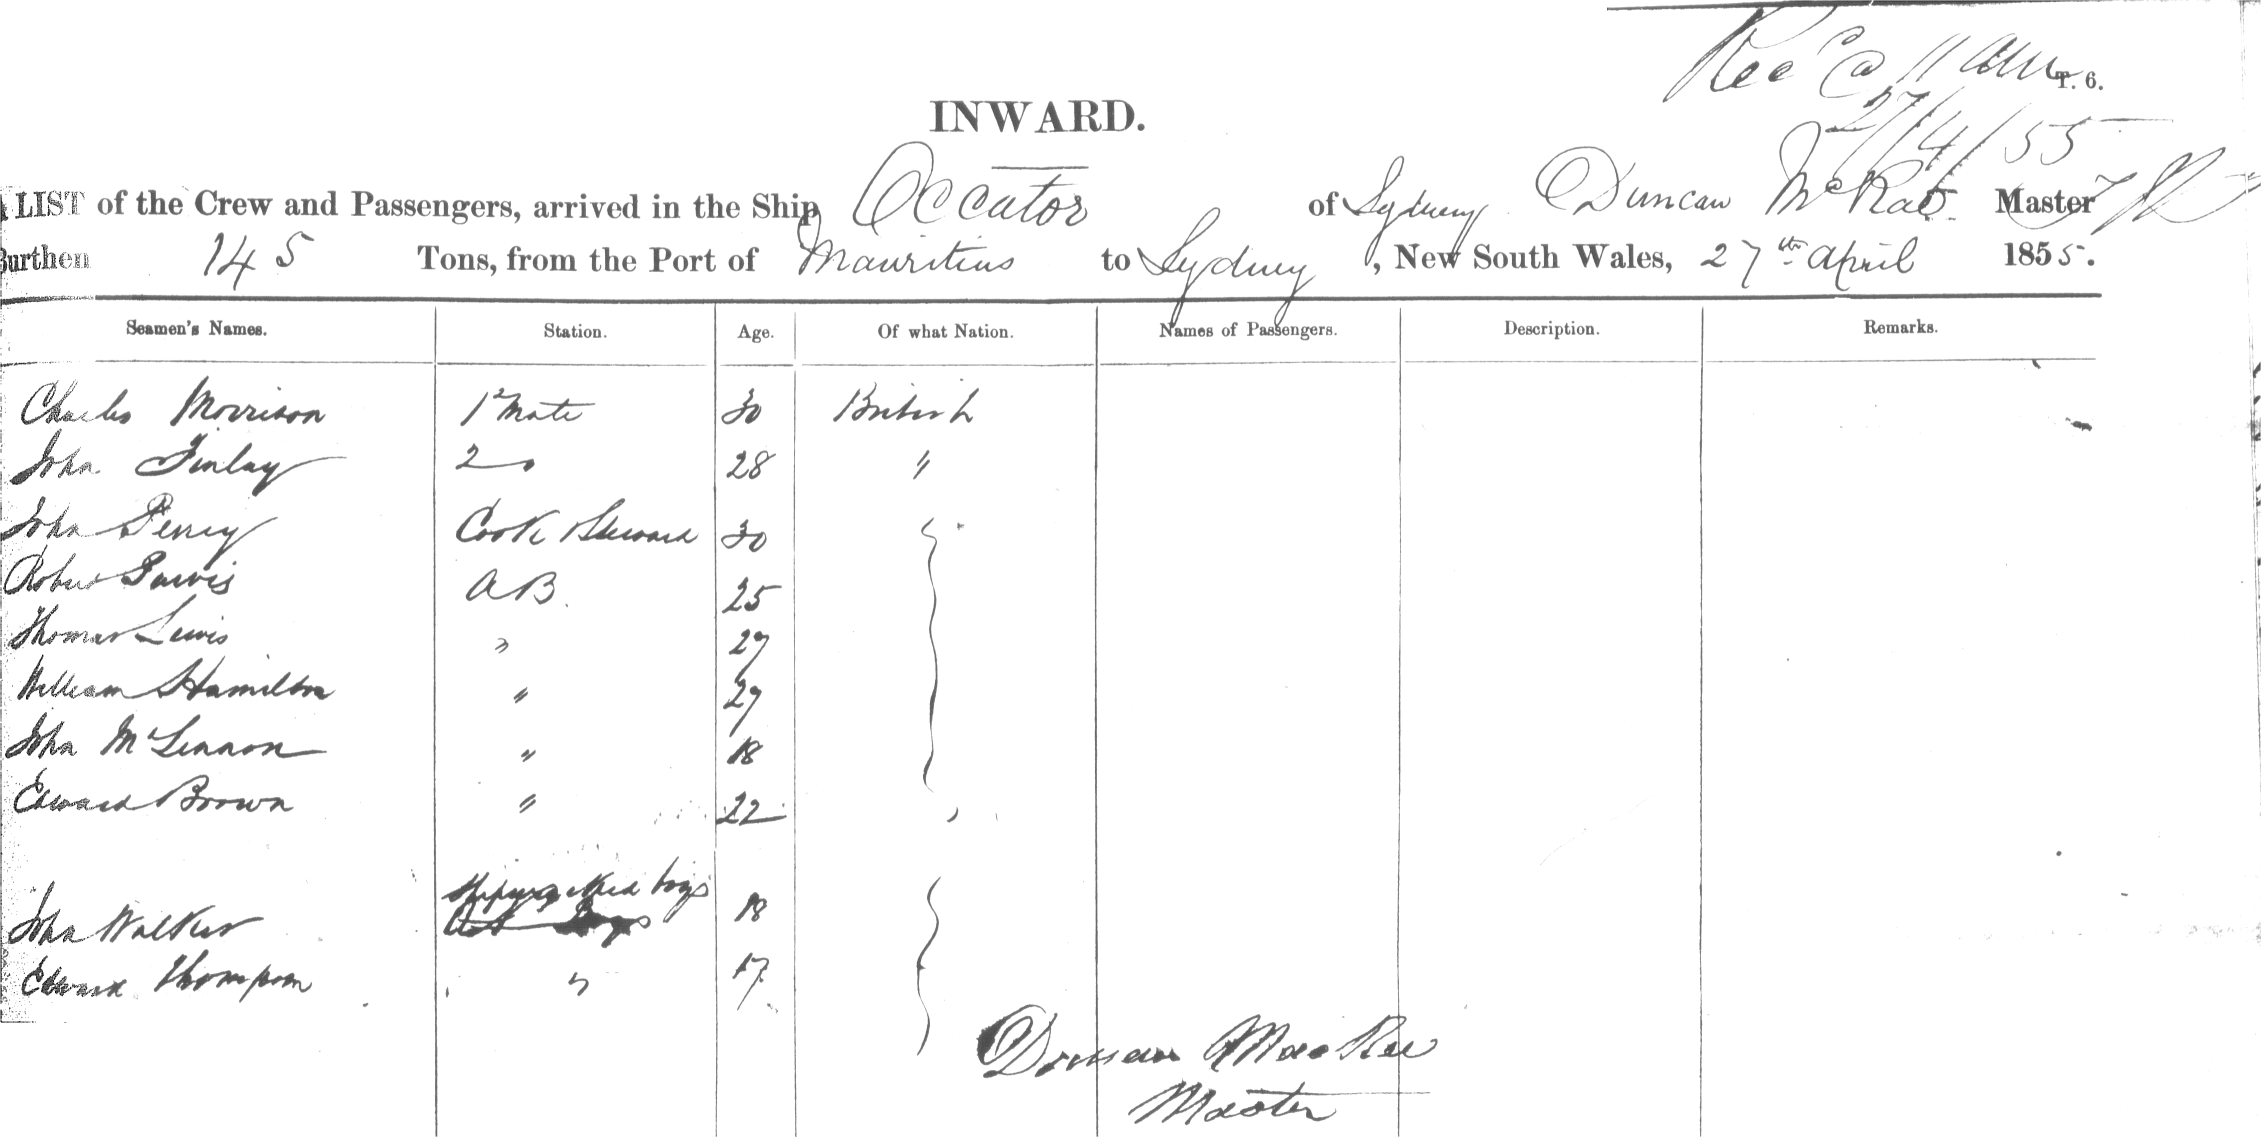 Rec @ 11 am
T. 6.
27/4/55
INWARD.
A LIST of the Crew and Passengers, arrived in the Ship Occator of Sydney Duncan McRae Master
Burthen 145 Tons, from the Port of Mauritius to Sydney, New South Wales, 27th April 1855.
Seamen's Names. Station. Age. Of what Nation. Names of Passengers. Description. Remarks.
Charles Morrison 1 Mate 30 British
John Finlay 2 " 28 "
John Perry Cook & Steward 30
Robert AB. 25
Thomas Lewis " 27
William Hamilton " 27
John McLennon " 18
Edward Brown " 22
Shipwrecked boys
John Walker 18
Edward Thompson " 17
Duncan MacRae
Master